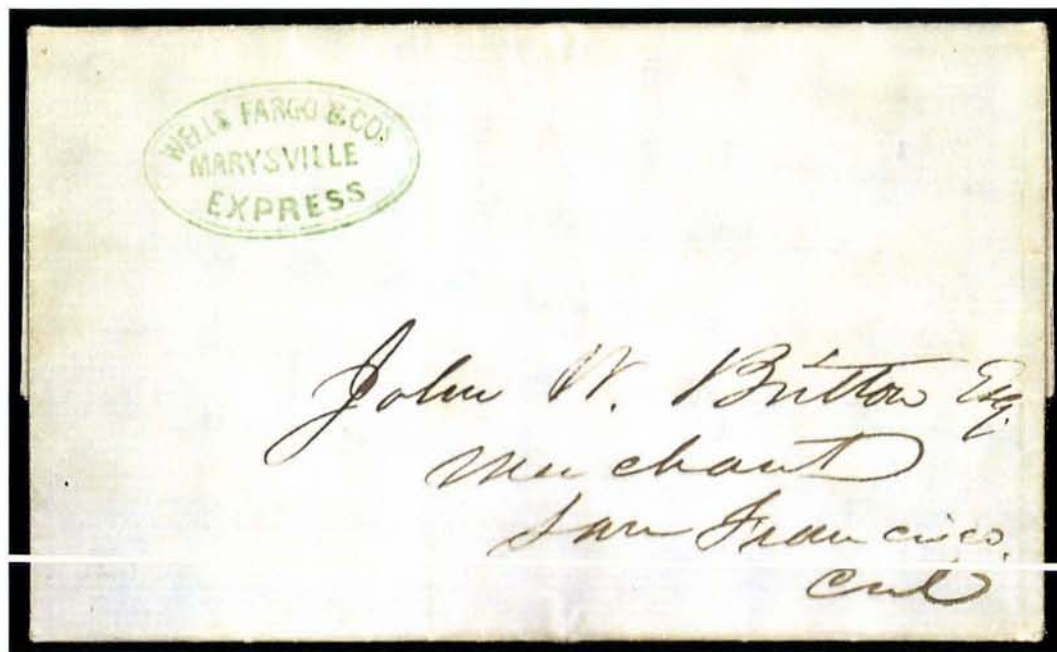 WELLS FARGO & CO'S
MARYSVILLE
EXPRESS
John W. Britton Esq.
Merchant
San Francisco.
Cal